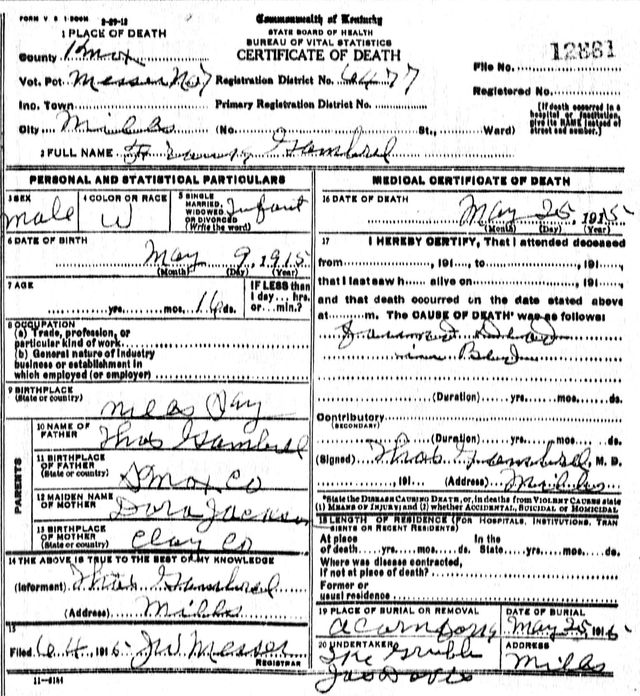 FORM V S 1-500M 3-29-12
Commonwealth of Kentucky
STATE BOARD OF HEALTH
BUREAU OF VITAL STATISTICS
CERTIFICATE OF DEATH
1 PLACE OF DEATH
County Knox
File No. 12881
Vot. Pct. Messer No 7 Registration District No. 6477
Registered No.
Inc. Town Primary Registration District No.
[If death occurred in a hospital or institution, give its NAME instead of street and number.]
City Mills (No. St., Ward)
2 FULL NAME Gambrel
PERSONAL AND STATISTICAL PARTICULARS
3 SEX male
4 COLOR OR RACE W
5 SINGLE MARRIED, WIDOWED OR DIVORCED (Write the word) Infant
6 DATE OF BIRTH May 9, 1915
(Month) (Day) (Year)
7 AGE yrs. mos. 16 ds.
IF LESS than 1 day... hrs. or... min.?
8 OCCUPATION
(a) Trade, profession, or particular kind of work
(b) General nature of industry business or establishment in which employed (or employer)
9 BIRTHPLACE (State or country)
PARENTS
10 NAME OF FATHER Thos Gambrel
11 BIRTHPLACE OF FATHER (State or country) Knox Co
12 MAIDEN NAME OF MOTHER Dora Jackson
13 BIRTHPLACE OF MOTHER (State or country) Clay Co
14 THE ABOVE IS TRUE TO THE BEST OF MY KNOWLEDGE
(Informant) Thos Gambrel
(Address) Mills
15
Filed 6 4, 1915 J W Messer
REGISTRAR
11-6184
MEDICAL CERTIFICATE OF DEATH
16 DATE OF DEATH
May 25, 1915
(Month) (Day) (Year)
17 I HEREBY CERTIFY, That I attended deceased
from, 191, to, 191,
that I last saw h alive on, 191,
and that death occurred on the date stated above
at m. The CAUSE OF DEATH* was as follows:
(Duration) yrs. mos. ds.
Contributory
(SECONDARY)
(Duration) yrs. mos. ds.
(Signed) Thos Gambrel, M. D.
, 191 (Address) Mills
*State the DISEASE CAUSING DEATH, or, in deaths from VIOLENT CAUSES state (1) MEANS OF INJURY; and (2) whether ACCIDENTAL, SUICIDAL OR HOMICIDAL
18 LENGTH OF RESIDENCE (FOR HOSPITALS, INSTITUTIONS, TRANSIENTS OR RECENT RESIDENTS)
At place of death yrs. mos. ds. In the State yrs. mos. ds.
Where was disease contracted, If not at place of death?
Former or usual residence
19 PLACE OF BURIAL OR REMOVAL
DATE OF BURIAL May 25, 1915
20 UNDERTAKER
ADDRESS Mills